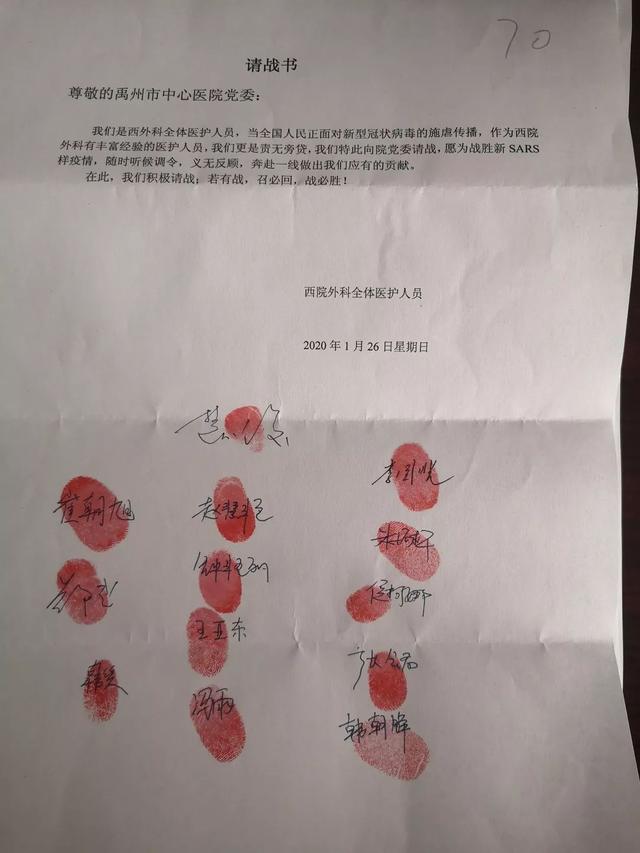 70
请战书
尊敬的禹州市中心医院党委：
我们是西外科全体医护人员，当全国人民正面对新型冠状病毒的施虐传播，作为西院
外科有丰富经验的医护人员，我们更是责无旁贷，我们特此向院党委请战，愿为战胜新 SARS
样疫情，随时听候调令，义无反顾，奔赴一线做出我们应有的贡献。
在此，我们积极请战；若有战，召必回，战必胜！
西院外科全体医护人员
2020 年 1 月 26 日星期日
崔朝旭
王亚东
冯雨
韩朝辉